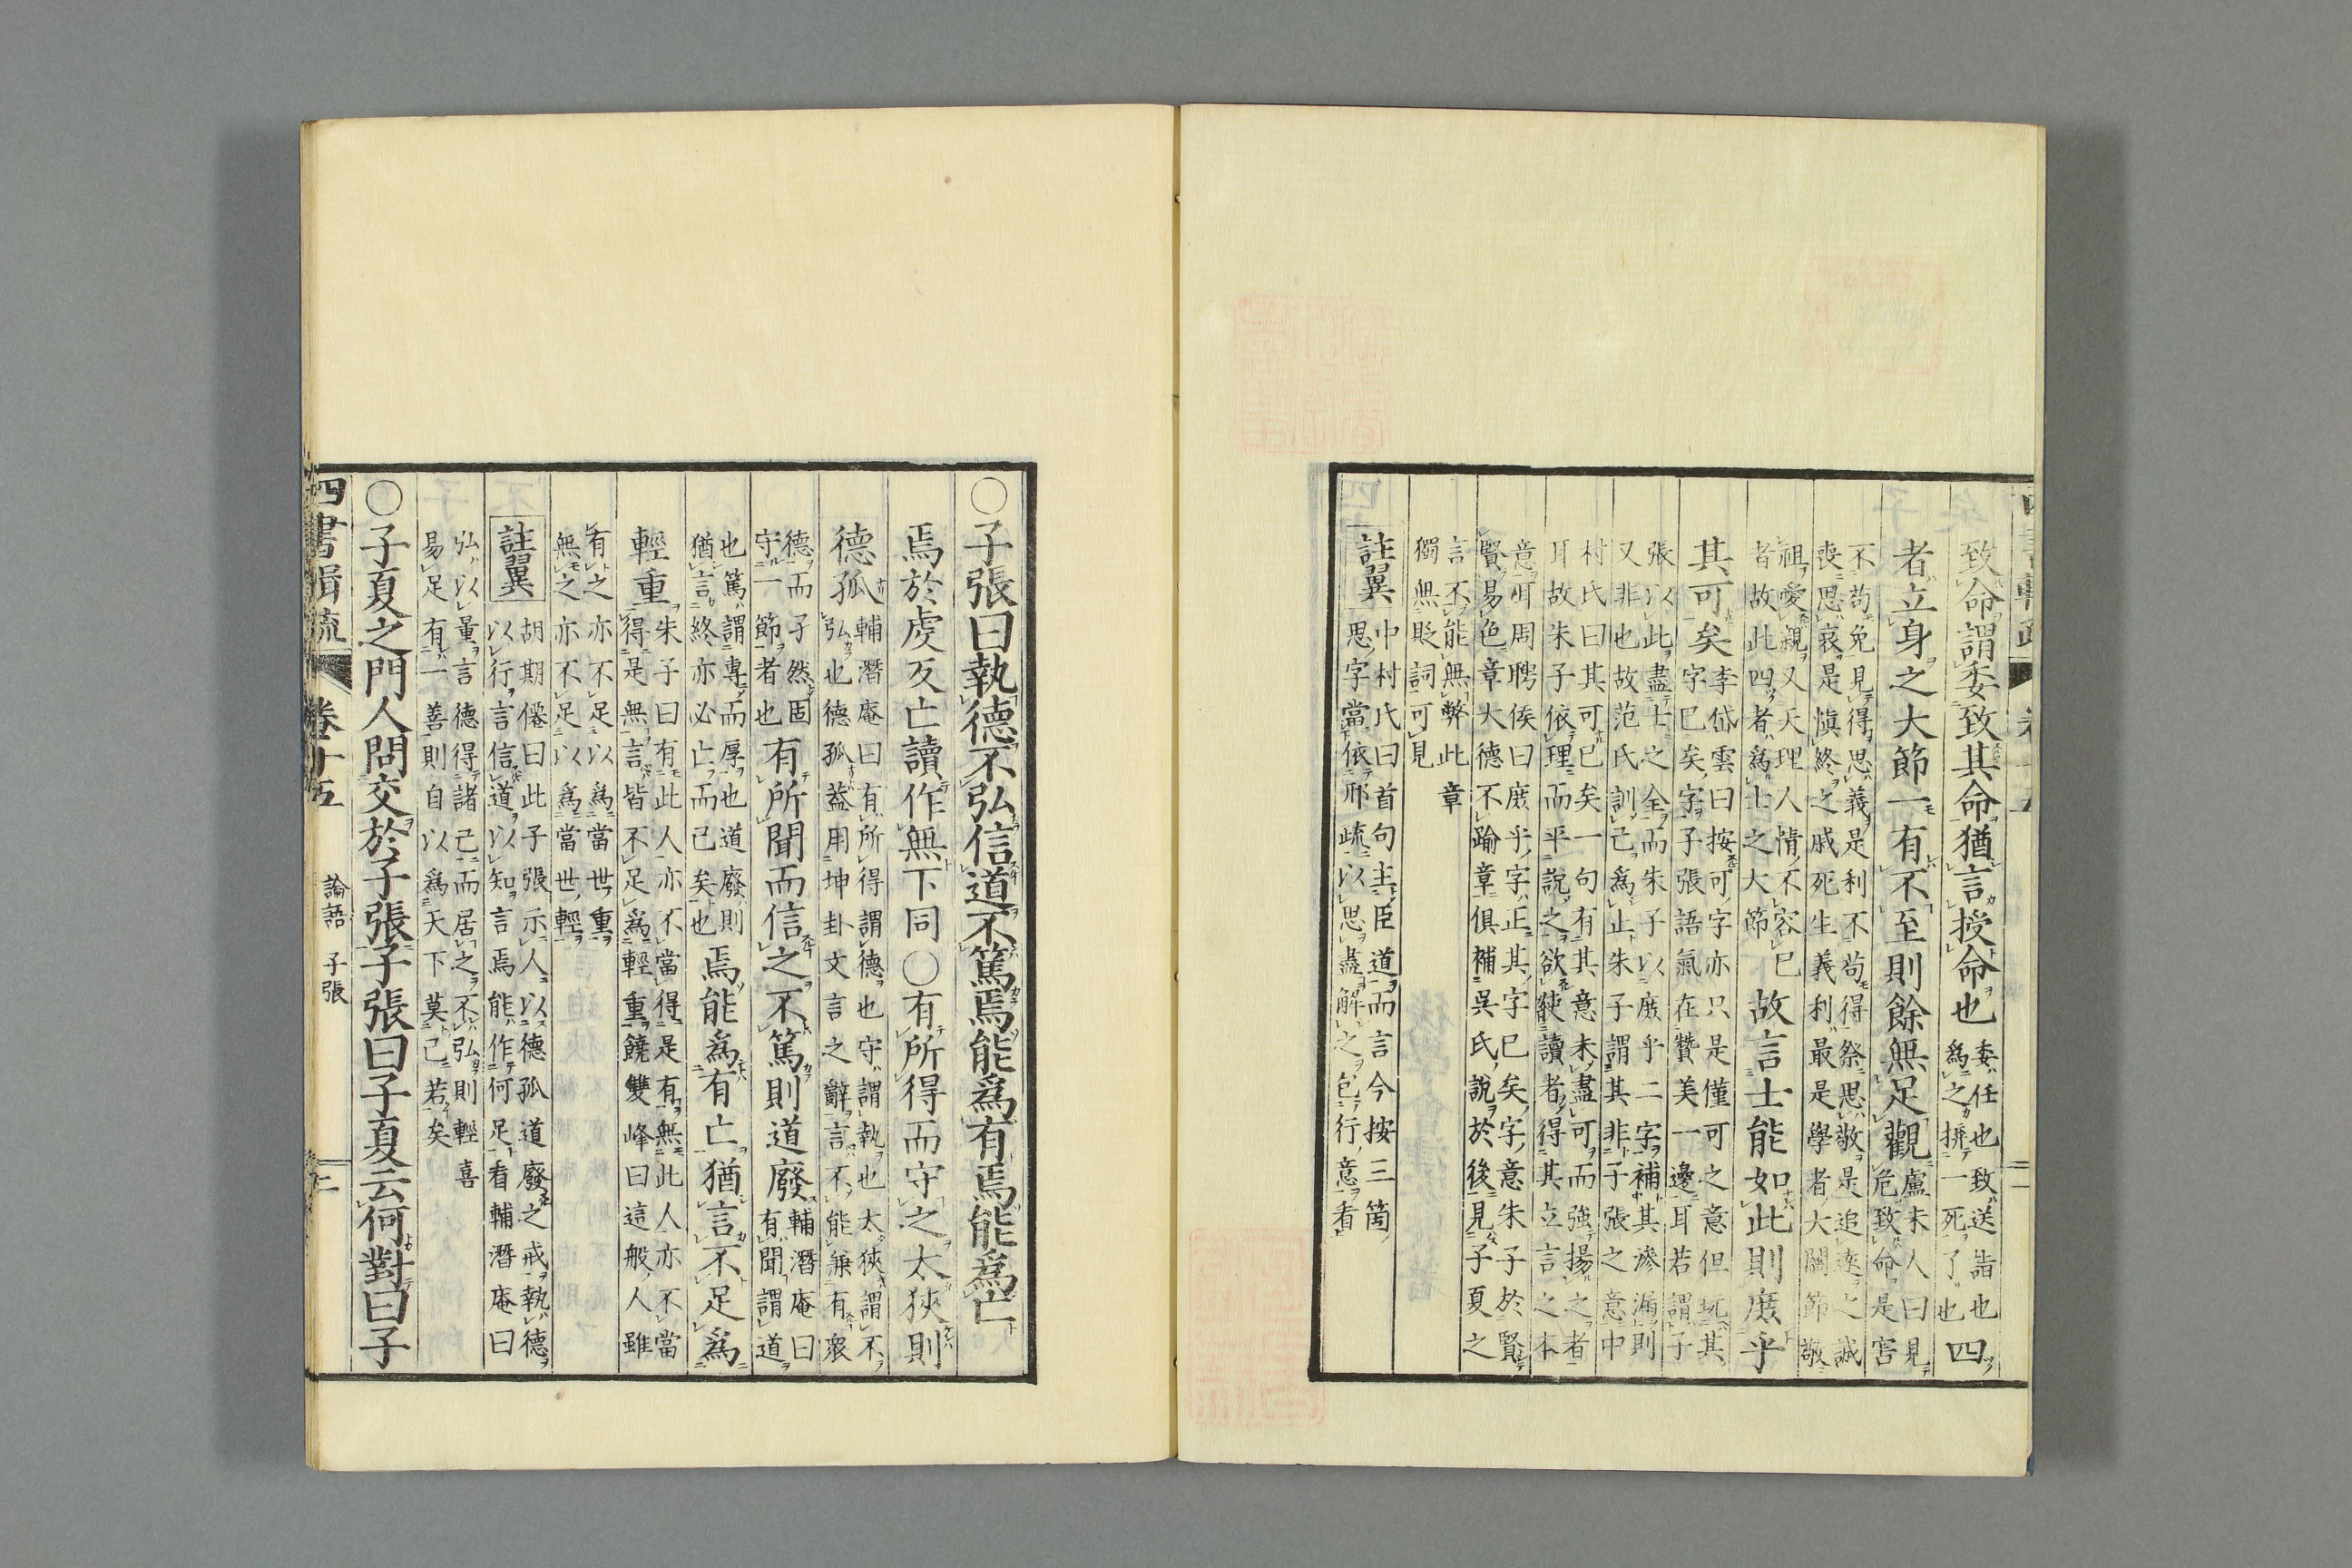 致命謂委致其命猶言授命也
委任也致送詣也
爲之拚一死了也
四
者立身之大節一有不至則餘無足觀
盧未人曰見
危致命是害
不苟免見得思義是利不苟得祭思敬是追遠之誠
喪思哀是愼終之戚死生義利最是學者大關節敬
祖愛親又天理人情不容已
者故此四者爲士之大節
故言士能如此則庶乎
其可矣
李岱雲曰按可字亦只是僅可之意但玩其
字已矣字子張語氣在贊美一邊耳若謂子
張以此盡士之全而朱子以庶乎二字補其滲漏則
又非也故范氏訓已爲止朱子謂其非子張之意中
村氏曰其可已矣一句有其意未盡可而強揚之者
耳故朱子依理而平說之欲使讀者得其立言之本
意耳周聘侯曰庶乎字正其字已矣字意朱子於賢
賢易色章大德不踰章俱補吳氏說於後見子夏之
言不能無弊此章
獨無貶詞可見
註翼
中村氏曰首句主臣道而言今按三箇
思字當依邢疏以思盡解之包行意看
○子張曰執德不弘信道不篤焉能爲有焉能爲亡
焉於虔反亡讀作無下同○有所得而守之太狹則
德孤
輔潛庵曰有所得謂德也守謂執也太狹謂不
弘也德孤蓋用坤卦文言之辭言不能兼有衆
德而子然固
守一節者也
有所聞而信之不篤則道廢
輔潛庵曰
有聞謂道
也篤謂專而厚也道廢則
猶言終亦必亡而已矣也
焉能爲有亡猶言不足爲
輕重
朱子曰有此人亦不當得是有無此人亦不當
得是無言皆不足爲輕重饒雙峰曰這般人雖
有之亦不足以爲當世重
無之亦不足以爲當世輕
註翼
胡期僊曰此子張示人以德孤道廢之戒執德
以行言信道以知言焉能作何足看輔潛庵曰
弘以量言德得諸己而居之不弘則輕喜
易足有一善則自以爲天下莫己若矣
○子夏之門人問交於子張子張曰子夏云何對曰子
四書輯疏 卷十五 論語 子張 三